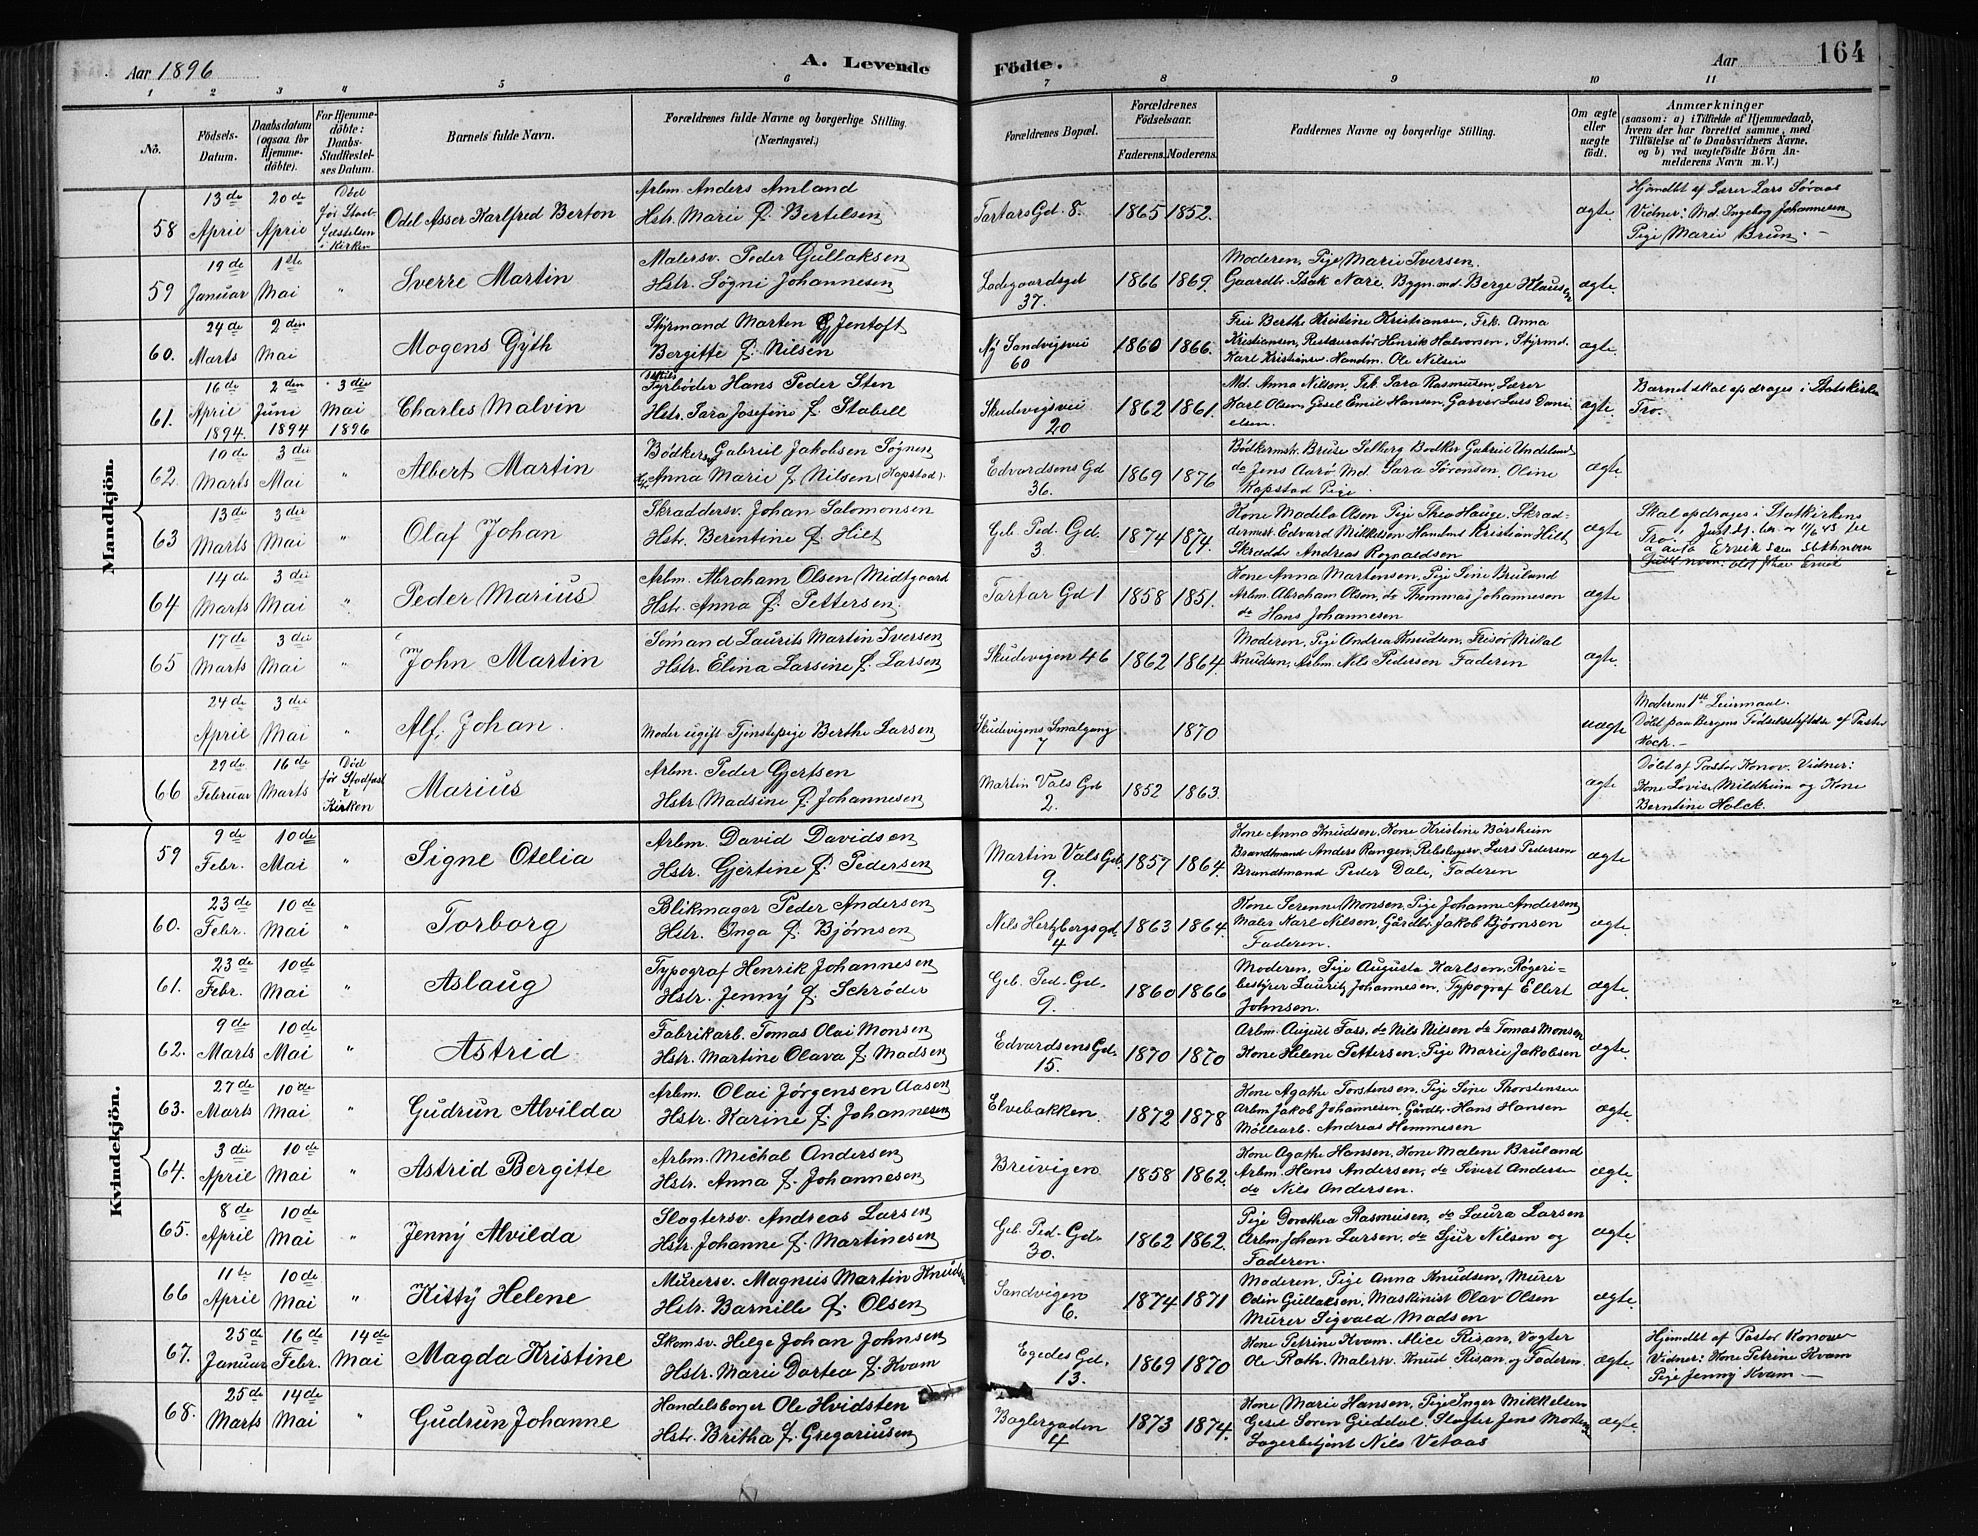 Aar 1896
A. Levende
Födte.
Aar
164
1 2 3 4 5 6 7 8 9 10 11
No.
Födsels-
Datum.
Daabsdatum
(ogsaa for
Hjemme-
döbte).
For Hjemme-
döbte:
Daabs-
Stadfæstel-
ses Datum.
Barnets fulde Navn.
Forældrenes fulde Navne og borgerlige Stilling.
(Næringsvei.)
Forældrenes Bopæl.
Forældrenes
Födselsaar.
Faderens.
Moderens.
Faddernes Navne og borgerlige Stilling.
Om ægte
eller
uægte
födt.
Anmærkninger
(saasom: a) i Tilfælde af Hjemmedaab,
hvem der har forrettet samme, med
Tilföielse af to Daabsvidners Navne,
og b) ved uægtefödte Börn An-
melderens Navn m. V.)
Mandkjön.
58
13de April
20de April
Död
før Stad-
fæstelsen
i Kirken
Odel Asser Karlfred Berton
Arbm. Anders Amland
Hstr. Marie f. Bertelsen
Tartars Gd. 8.
1865
1852.
ægte
Hjemdbt af Lærer Lars Søraas
Vidner: Md. Ingebog Johannesen
Pige Marie Brun. —
59
19de Januar
1ste Mai
"
Sverre Martin
Malersv. Peder Gullaksen
Hstr. Søgni Johannesen
Ladegaardsgd
37.
1866
1869.
Moderen, Pige Marie Iversen
Gaardbr. Isak Nare, Bygn.md. Berge Klausen
ægte.
60.
24de Marts
2den Mai
Mogens Gyth
Styrmand Marten G Jentoft
Bergitte f. Nilsen
Ny Sandvigsvei
60
1860
1866.
Frü Berthe Kristine Kristiansen, Frk. Anna
Kristiansen, Restauratør Henrik Halvorsen, Styrmd.
Karl Kristiansen, Handm. Ole Nilsen
ægte.
61.
16de April 1894.
2den Juni 1894
3die Mai 1896
Charles Malvin
Fyrbøder Hans Peder Sten
Hstr. Sara Josefine f. Stabell
Skudevigsvei
20
1862
1861.
Md. Anna Nilsen, Frk. Sara Rasmusen, Lærer
Karl Olsen, Gesel Emil Hansen, Garver Lars Dani
elsen.
ægte.
Barnet skal opdrages i Statskirkens
Tro.
62.
10de Marts
3die Mai
"
Albert Martin
Bødkersv. Gabriel Jakobsen Søgnen
Anna Marie f. Nilsen (Kapstad).
Edvardsens Gd
36.
1869
1876
Bödkermstr. Bruse Selberg Bödker Gabriel Undelund
do Jens Aarø Md. Sara Sørensen. Oline
Kapstad Pige.
ægte
63
13de Marts
3die Mai
"
Olaf Johan
Skraddersv. Johan Salomonsen
Hstr. Berentine f. Hilt
Geb. Ped. Gd.
3.
1874
1874.
Kone Madela Olsen Pige Thea Hauge. Skrad-
dermst. Edvard Mikkelsen Handms Kristian Hilt
Skradder Andreas Rognaldsen
ægte
Skal opdrages i Statkirkens
Tro.
64
14de Marts
3die Mai
"
Peder Marius
Arbm. Abraham Olsen Midtgaard
Hstr. Anna f. Pettersen.
Tartar Gd 1
1858
1851.
Kone Anna Martensen, Pige Sine Bruland
Arbm Abraham Olsen, do Thommas Johannesen
do Hans Johannesen
ægte
65
17de Marts
3die Mai
"
John Martin
Sømand Laurits Martin Iversen
Hstr. Elina Larsine f. Larsen
Skudevigen 46
1862
1864.
Moderen, Pige Andrea Knudsen, Frisør Mikal
Knudsen, Arbm. Nils Pedersen Faderen
ægte.
24de April
3die Mai
"
Alf Johan
Moder ugift Tjenstepige Berthe Larsen
Skudevigens Smalgang
7
1870
uægte
Moderens 1ste Leiermaal.
Døbt paa Bergens Fødselsstiftelse af Pastor
Koch. —
66
29de Februar
16de Marts
Død
før Stadfæst
i
Kirken
Marius
Arbm. Peder Gjertsen
Hstr. Madsine f. Johannesen
Martin Vals Gd
2.
1852
1863.
ægte
Døbt af Pastor Konov. Vidner:
Kone Lovise Mildheim og Kone
Berntine Holck.
Kvindekjön.
59
9de Febr.
10de Mai
"
Signe Otelia
Arbm. David Davidsen
Hstr. Gjertine f. Pedersen
Martin Vals Gd.
9.
1857
1864.
Kone Anna Knudsen, Kone Kristine Børsheim
Brandtmand Anders Rangen, Rebslagersv. Lars Pedersen
Brandtmand Peder Dale, Faderen
ægte
60.
23de Febr.
10de Mai
"
Torborg
Blikmager Peder Andersen
Hstr. Inga f. Bjørnsen
Nils Hertzbergs gd.
4
1863
1864.
Kone Serenne Monsen, Pige Johanne Andersen
Maler Karl Nilsen, Gårdbr. Jakob Bjørnsen
Faderen.
ægte.
61.
23de Febr.
10de Mai
"
Aslaug
Typograf Henrik Johannesen
Hstr. Jenny f. Schrøder
Geb. Ped. Gd.
9.
1860
1866
Moderen, Pige Augusta Karlsen, Røgeri-
bestyrer Lauritz Johannesen, Typograf Ellert
Johnsen.
ægte.
62.
9de Marts
10de Mai
"
Astrid
Fabrikarb. Tomas Olai Monsen
Hstr. Martine Olava f. Madsen
Edvardsens Gd.
15.
1870
1870
Arbm. August Fass, do Nils Nilsen do Tomas Monsen
Kone Helene Pettersen, Pige Marie Jakobsen
ægte.
63.
27de Marts
10de Mai
"
Gudrun Alvilda
Arbm. Olai Jørgensen Aasen
Hstr. Karine f. Johannesen
Elvebakken.
1872
1878
Kone Agathe Torstensen, Pige Sine Thorstensen
Arbm Jakob Johannesen, Gårdbr. Hans Hansen
Møllearb. Andreas Hemmesen
ægte.
64.
3die April
10de Mai
"
Astrid Bergitte
Arbm. Michal Andersen
Hstr. Anna f. Johannesen
Breivigen
1858
1862.
Kone Agathe Hansen, Kone Malene Bruland
Arbm. Hans Andersen, do Sivert Andersen
do Nils Andersen.
ægte.
65.
8de April
10de Mai
"
Jenny Alvilda
Slagtersv. Andreas Larsen
Hstr. Johanne f. Martinesen
Geb. Ped. Gd.
30.
1862
1862.
Pige Dorothea Rasmusen, do Laura Larsen
Arbm Johan Larsen, do Sjur Nilsen og
Faderen.
ægte.
66
11te April
10de Mai
"
Kitty Helene
Murersv. Magnus Martin Knudsen
Hstr. Barnille f. Olsen
Sandvigen
6.
1874
1871
Moderen, Pige Anna Knudsen, Murer
Odin Gullaksen, Maskinist Olav Olsen
Murer Sigvald Madsen
ægte.
67.
25de Januar
16de Febr.
14de Mai
Magda Kristine
Skomsv. Helge Johan Johnsen
Hstr. Marie Dortea f. Kvam
Egedes Gd.
13.
1869
1870
Kone Petrine Kvam. Alice Risan, Vogter
Ole Rath. Malersv. Knud Risan og Faderen
ægte.
Hjemdbt af Pastor Konow
Vidner: Kone Petrine Kvam
Pige Jenny Kvam —
68.
25de Marts
14de Mai
"
Gudrun Johanne
Handelsborger Ole Hvidsten
Hstr. Britha f. Gregariusen
Baglergaden
4
1873
1874.
Kone Marie Hansen, Pige Inger Mikkelsen
Gesel Soren Giddal, Slagter Jens Mortens
Lagerbetjent Nils Vetaas
ægte.